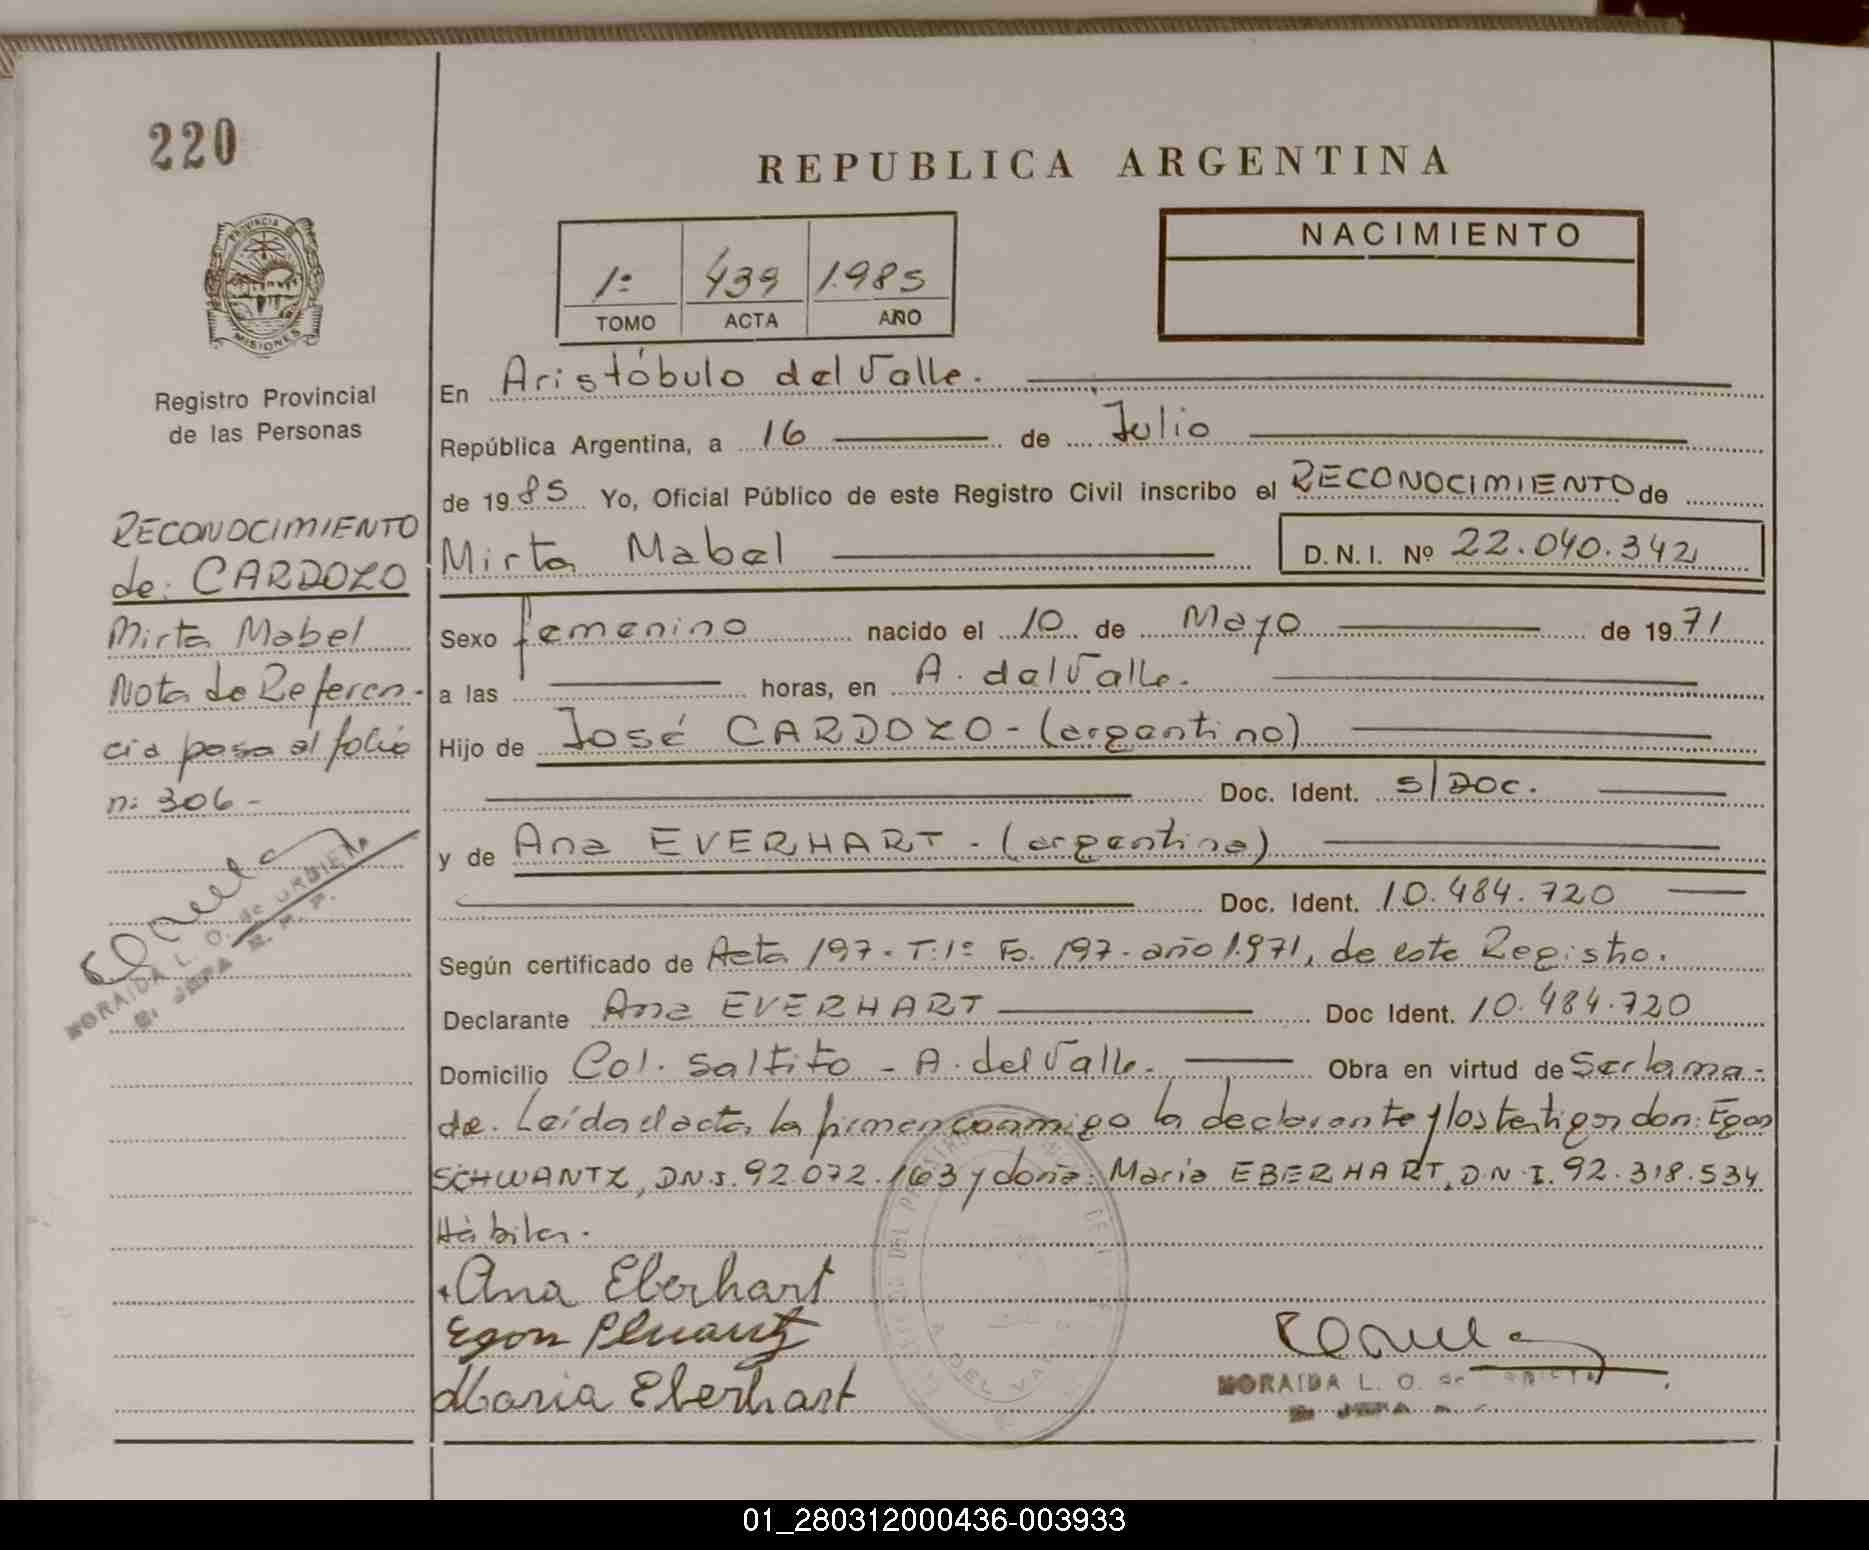 220
REPUBLICA ARGENTINA
PROVINCIA DE
MISIONES
Registro Provincial
de las Personas
1º 439 1.985
TOMO ACTA AÑO
NACIMIENTO
RECONOCIMIENTO
de: CARDOZO
Mirta Mabel
Nota de Referen-
cia pasa al folio
nº 306-
MORAIDA L. O. de URBIETA
En Aristóbulo del Valle.
República Argentina, a 16 de Julio
de 1985 Yo, Oficial Público de este Registro Civil inscribo el RECONOCIMIENTO de
Mirta Mabel D.N.I. Nº 22.040.342
Sexo femenino nacido el 10 de Mayo de 1971
a las horas, en A. del Valle.
Hijo de José CARDOZO - (argentino)
Doc. Ident. S/DOC.
y de Ana EVERHART - (argentina)
Doc. Ident. 10.484.720
Según certificado de Acta 197. T:1º Fº. 197. año 1.971, de este Registro.
Declarante Ana EVERHART Doc Ident. 10.484.720
Domicilio Col. Saltito - A. del Valle. Obra en virtud de Ser la ma-
dre. Leída el acta, la firman conmigo la declarante y los testigos don: Egon
SCHWANTZ, DN.I. 92.072.163 y doña: Maria EBERHART, D.N.I. 92.318.534
Hábiles.
Ana Eberhart
Egon
Maria Eberhart
MORAIDA L. O. de
JEFA
01_280312000436-003933